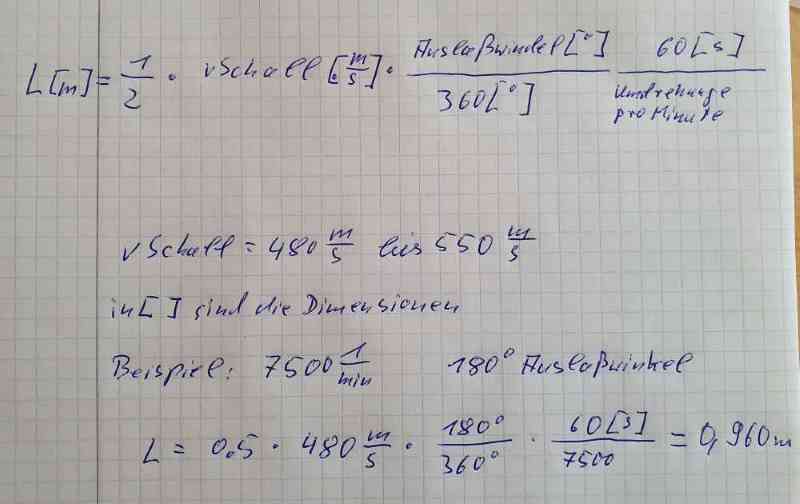 L[m] = 1/2 · vSchall [m/s] · Auslaßwinkel[°]/360[°] 60[s]/Umdrehunge pro Minute
vSchall = 480 m/s bis 550 m/s
in [ ] sind die Dimensionen
Beispiel: 7500 1/min 180° Auslaßwinkel
L = 0.5 · 480 m/s · 180°/360° · 60[s]/7500 = 0,960m